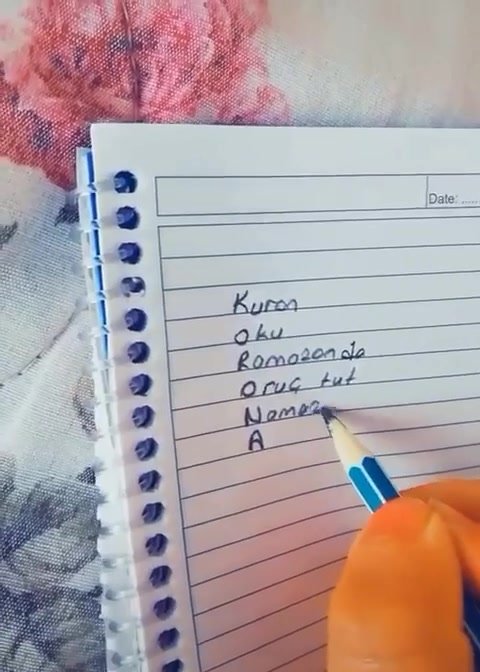 Date: ......
Kuran
oku
Ramazanda
Oruç tut
Namaz
A